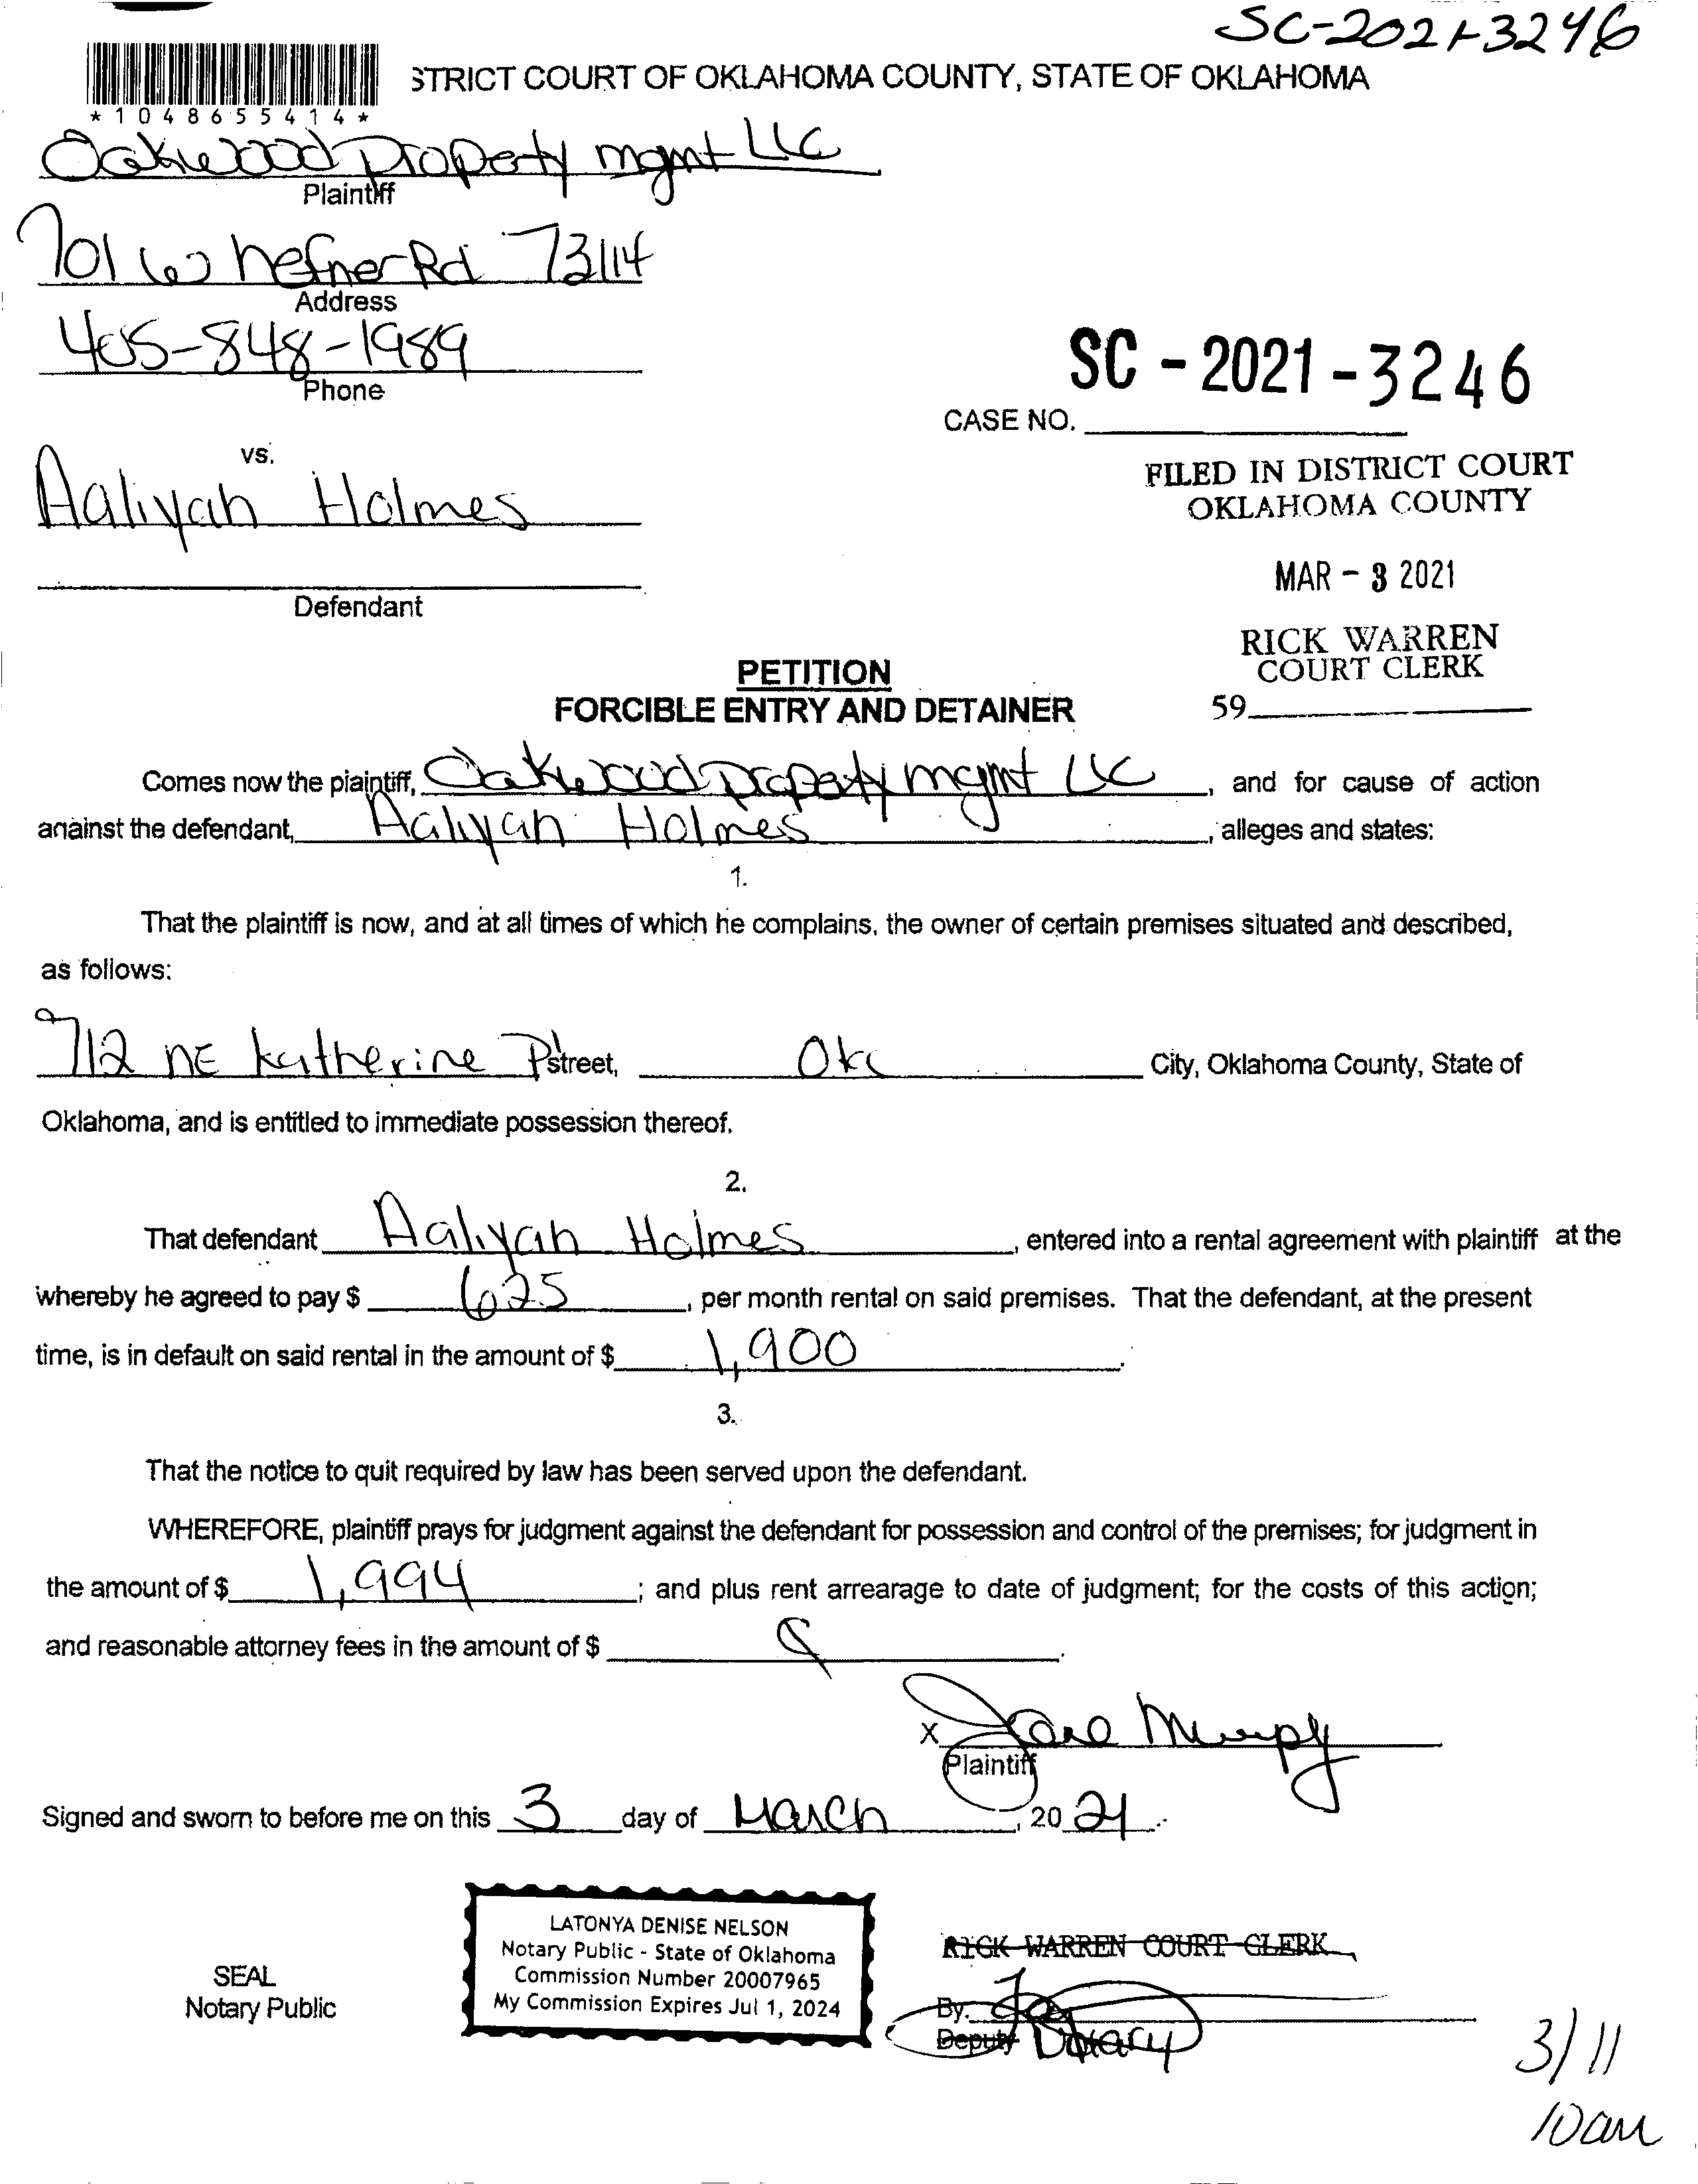 SC-2021-3246
STRICT COURT OF OKLAHOMA COUNTY, STATE OF OKLAHOMA
*1048655414*
Oakwood Property mgmt LLC
Plaintiff
701 W hefner Rd 73114
Address
405-848-1989
Phone
SC - 2021 - 3246
CASE NO.
vs.
FILED IN DISTRICT COURT
OKLAHOMA COUNTY
Aaliyah Holmes
MAR - 3 2021
Defendant
RICK WARREN
COURT CLERK
59
PETITION
FORCIBLE ENTRY AND DETAINER
Comes now the plaintiff, Oakwood Property mgmt LLC, and for cause of action
against the defendant, Aaliyah Holmes, alleges and states:
1.
That the plaintiff is now, and at all times of which he complains, the owner of certain premises situated and described,
as follows:
712 NE Katherine P street, Okc City, Oklahoma County, State of
Oklahoma, and is entitled to immediate possession thereof.
2.
That defendant Aaliyah Holmes, entered into a rental agreement with plaintiff at the
whereby he agreed to pay $ 625, per month rental on said premises. That the defendant, at the present
time, is in default on said rental in the amount of $ 1,900.
3.
That the notice to quit required by law has been served upon the defendant.
WHEREFORE, plaintiff prays for judgment against the defendant for possession and control of the premises; for judgment in
the amount of $ 1,994; and plus rent arrearage to date of judgment; for the costs of this action;
and reasonable attorney fees in the amount of $
X
Plaintiff
Signed and sworn to before me on this 3 day of March, 20 21.
LATONYA DENISE NELSON
Notary Public - State of Oklahoma
Commission Number 20007965
My Commission Expires Jul 1, 2024
SEAL
Notary Public
RICK WARREN COURT CLERK
By.
Deputy Notary
3/11
10am